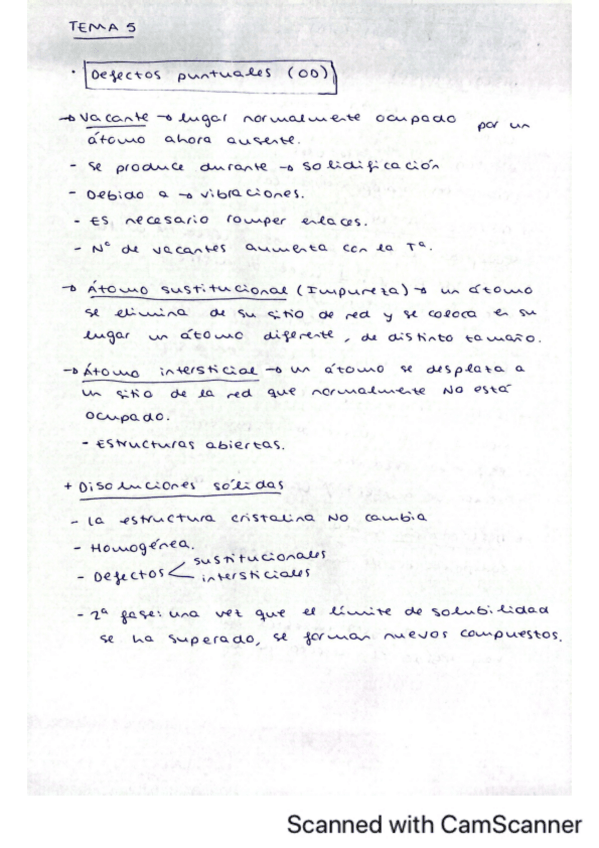 TEMA 5
· Defectos puntuales (OD)
→ Vacante → lugar normalmente ocupado por un
átomo ahora ausente.
- Se produce durante → solidificación
- Debido a → vibraciones.
- Es necesario romper enlaces.
- Nº de vacantes aumenta con la Tª.
→ Átomo sustitucional (Impureza) → un átomo
se elimina de su sitio de red y se coloca en su
lugar un átomo diferente, de distinto tamaño.
→ Átomo intersticial → un átomo se desplaza a
un sitio de la red que normalmente NO está
ocupado.
- Estructuras abiertas.
+ Disoluciones sólidas
- La estructura cristalina NO cambia
- Homogénea.
- Defectos < sustitucionales
intersticiales
- 2ª fase: una vez que el límite de solubilidad
se ha superado, se forman nuevos compuestos.
Scanned with CamScanner